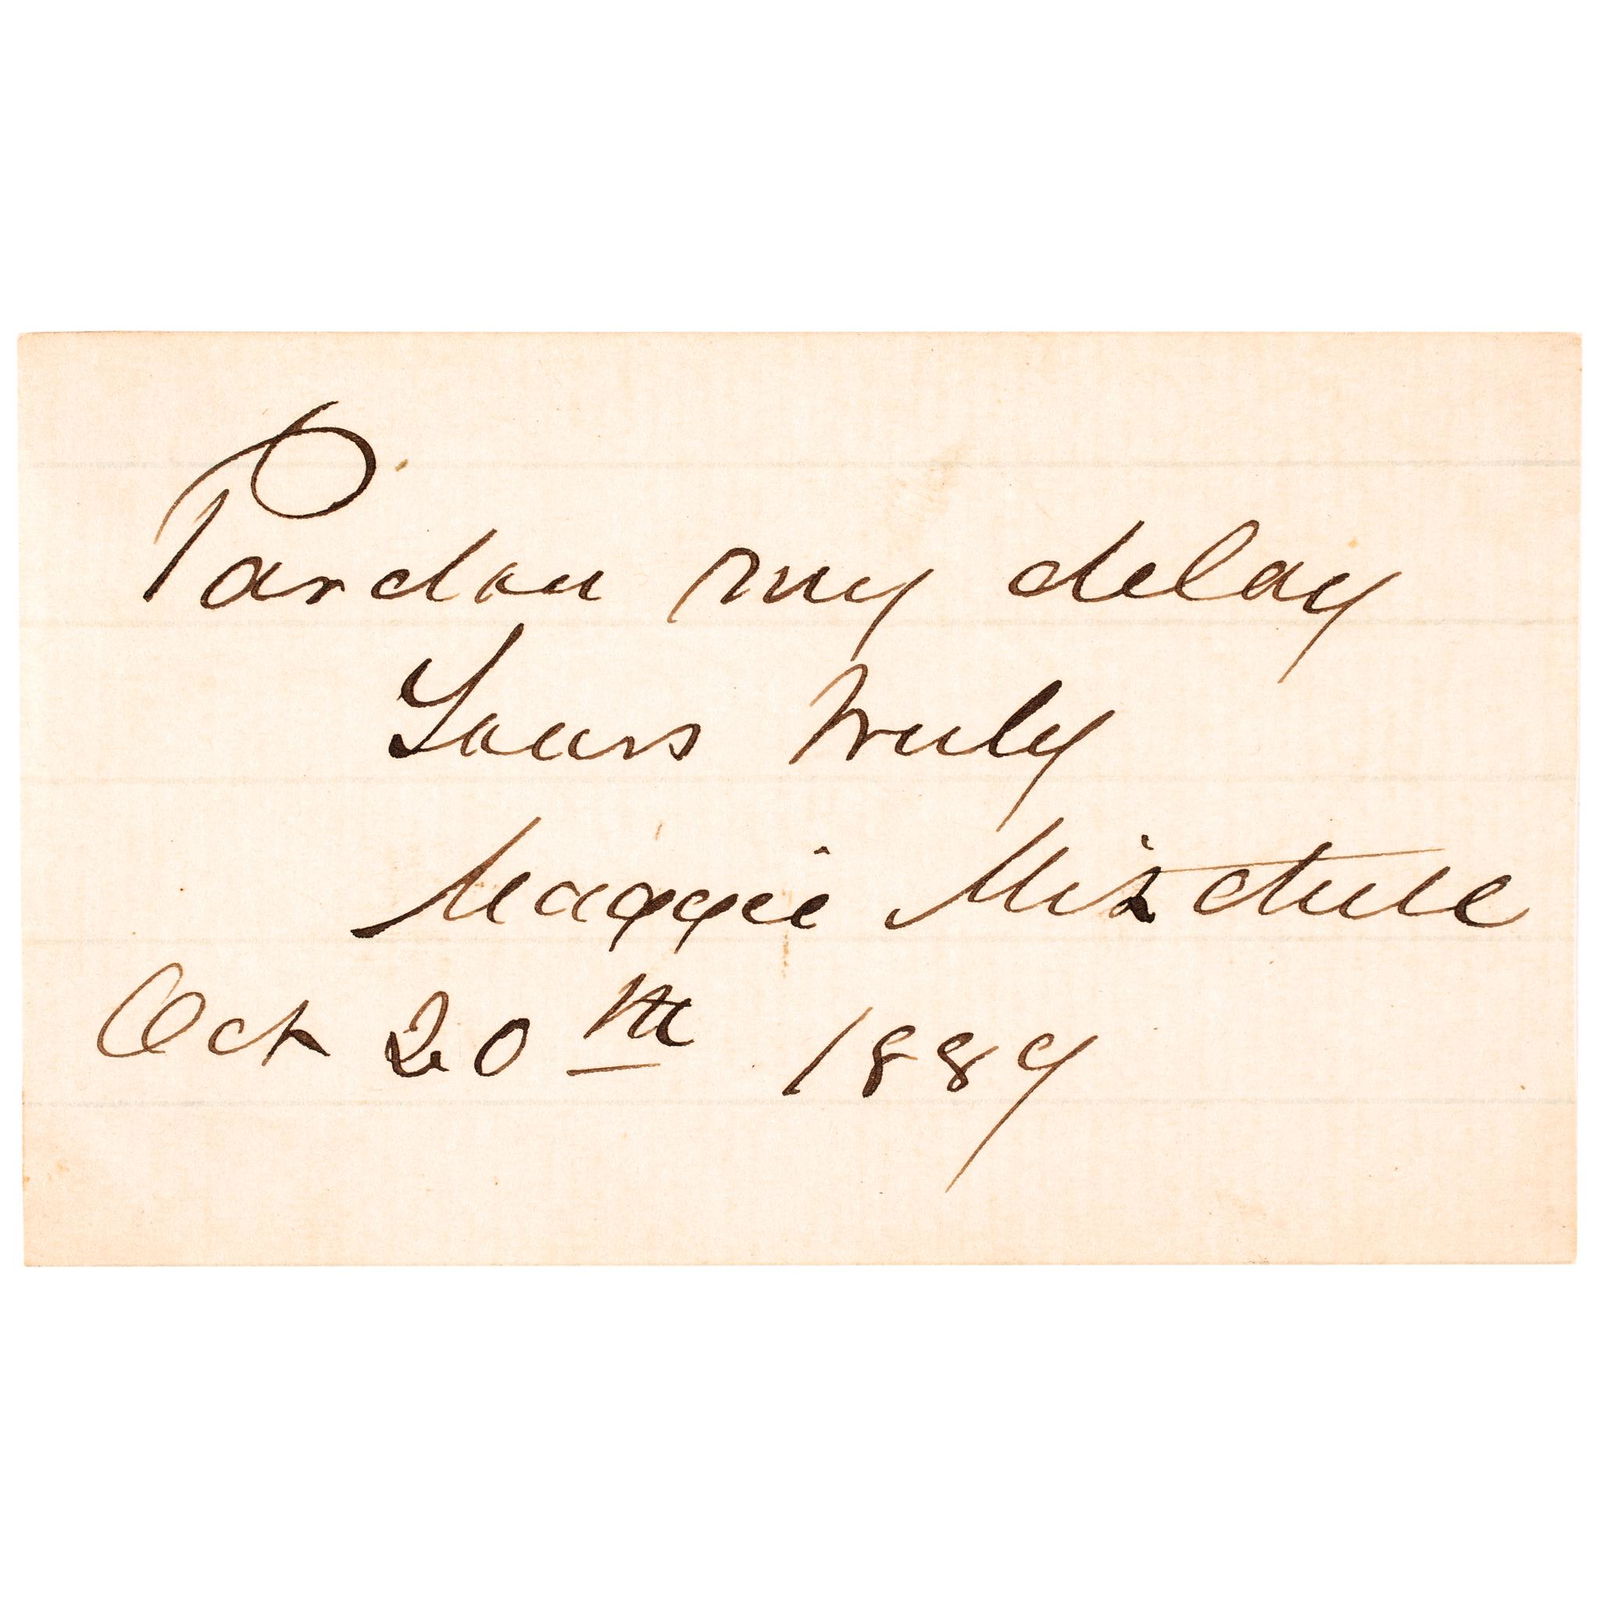 Pardon my delay
Yours truly
Maggie Mitchell
Oct 20th 1889